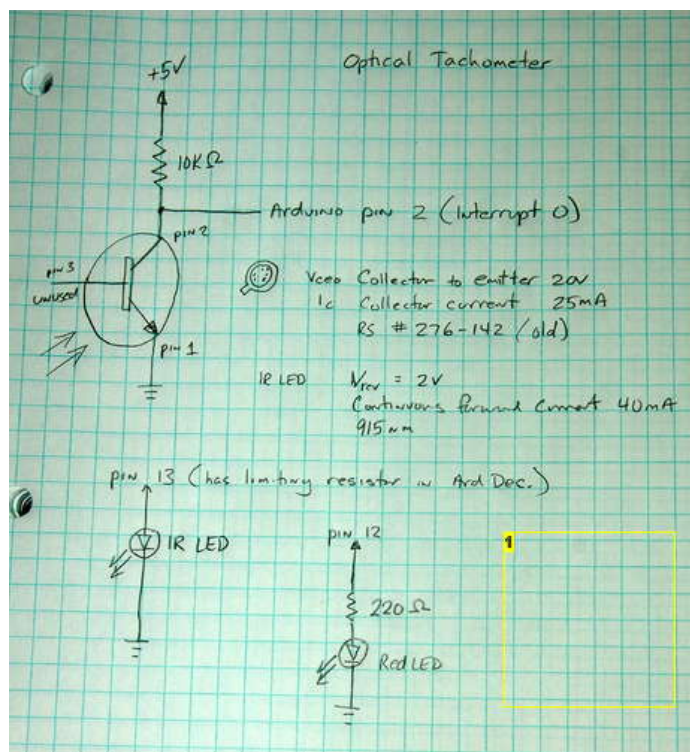 Optical Tachometer
+5V
10KΩ
Arduino pin 2 (Interrupt 0)
pin 2
pin 3
unused
pin 1
Vceo Collector to emitter 20V
Ic Collector current 25mA
RS # 276-142 (old)
IR LED Vrev = 2V
Continuous forward current 40mA
915nm
pin 13 (has limiting resistor in Ard Dec.)
IR LED
pin 12
220Ω
Red LED
1